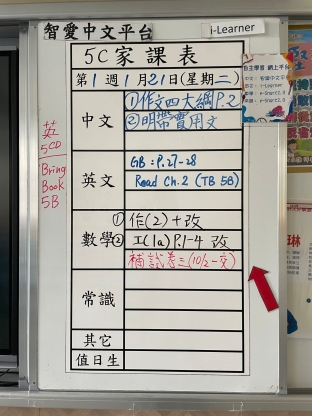 智愛中文平台
i-Learner
5C家課表
第1週1月21日(星期二)
中文
①作文四大綱P.2
②明帶實用文
英
5CD
Bring
Book
5B
英文
GB: P.27-28
Read Ch.2 (TB 5B)
數學
①作(2)+改
②工(1a)P.1-4 改
補試卷三(10/2-交)
常識
其它
值日生
自主學習網上平台